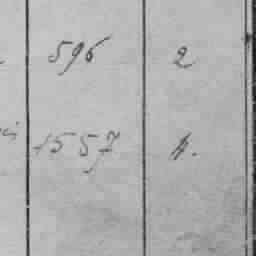 596 2
1557 4.